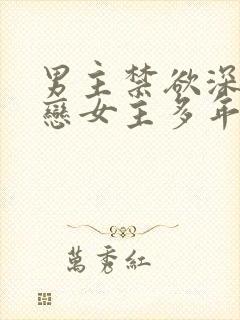 男主禁欲深
戀女主多年
萬秀紅